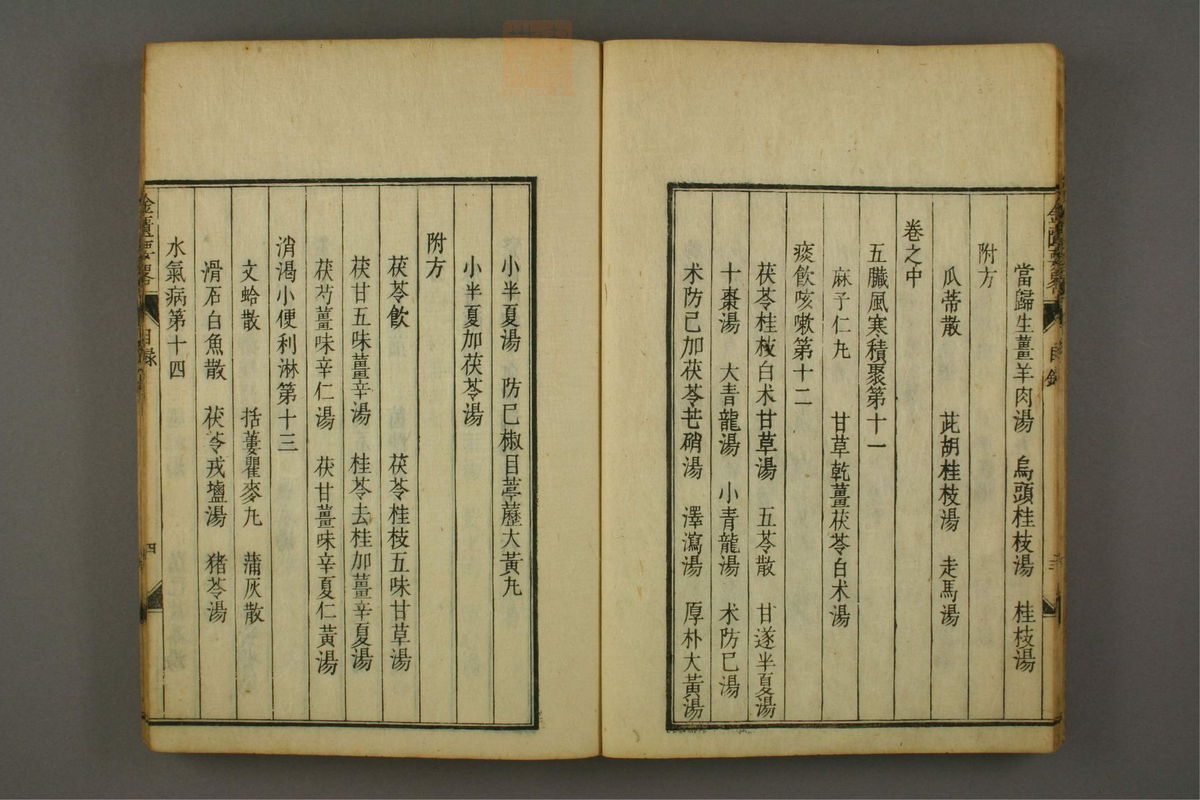 當歸生薑羊肉湯 烏頭桂枝湯 桂枝湯
附方
瓜蒂散 茈胡桂枝湯 走馬湯
卷之中
五臟風寒積聚第十一
麻子仁丸 甘草乾薑茯苓白术湯
痰飲咳嗽第十二
茯苓桂枝白术甘草湯 五苓散 甘遂半夏湯
十棗湯 大青龍湯 小青龍湯 术防已湯
术防已加茯苓芒硝湯 澤瀉湯 厚朴大黃湯
小半夏湯 防已椒目葶藶大黃丸
小半夏加茯苓湯
附方
茯苓飲 茯苓桂枝五味甘草湯
茯甘五味薑辛湯 桂苓去桂加薑辛夏湯
茯芍薑味辛仁湯 茯甘薑味辛夏仁黃湯
消渴小便利淋第十三
文蛤散 括蔞瞿麥丸 蒲灰散
滑石白魚散 茯苓戎塩湯 猪苓湯
水氣病第十四
金匱要畧 目録 四